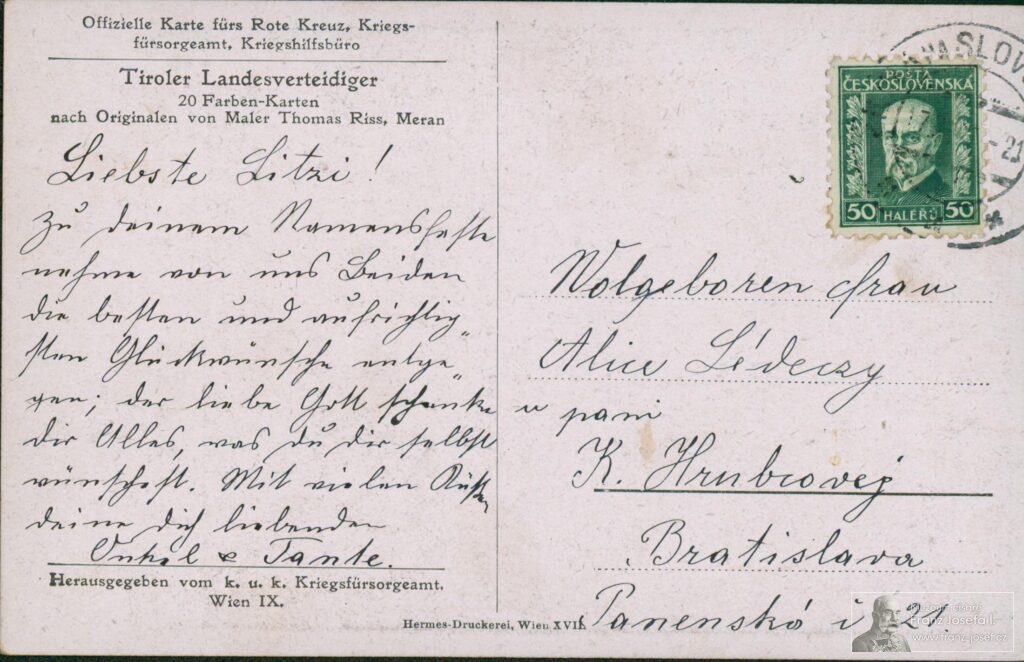 Offizielle Karte fürs Rote Kreuz, Kriegs-
fürsorgeamt, Kriegshilfsbüro
Tiroler Landesverteidiger
20 Farben-Karten
nach Originalen von Maler Thomas Riss, Meran
Liebste Litzi!
Zu deinem Namensfeste
nehme von uns Beiden
die besten und aufrichtig„
sten Glückwünsche entge„
gen; der liebe Gott schenke
dir Alles, was du dir selbst
wünschest. Mit vielen Küssen
deine dich liebenden
Onkel & Tante.
Herausgegeben vom k. u. k. Kriegsfürsorgeamt,
Wien IX.
Hermes-Druckerei, Wien XVII.
POŠTA
ČESKOSLOVENSKÁ
50 HALÉŘŮ 50
SLOV
21
Wolgeboren frau
Alice Lédeczy
u pani
K. Hrubcovej
Bratislava
Panenská 21.
Muzeum císaře
Franz Josefa I.
www.franz-josef.cz